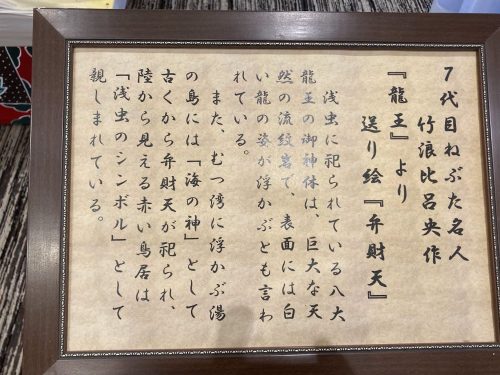 7代目ねぶた名人
竹浪比呂央作
『龍王』より
送り絵『弁財天』
浅虫に祀られている八大
龍王の御神体は、巨大な天
然の流紋岩で、表面には白
い龍の姿が浮かぶとも言わ
れている。
また、むつ湾に浮かぶ湯
の島には「海の神」として
古くから弁財天が祀られ、
陸から見える赤い鳥居は
「浅虫のシンボル」として
親しまれている。